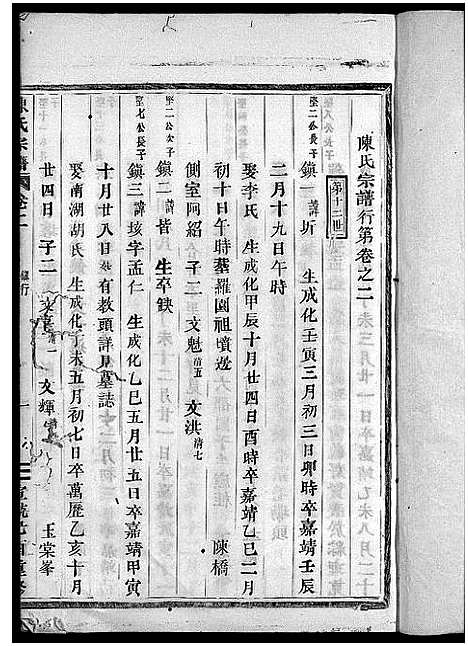 陳氏宗譜行第卷之二
第十二世
堅二公長子
鎮一 諱圻 生成化壬寅三月初三日卯時卒嘉靖壬辰
二月十九日午時
娶李氏 生成化甲辰十月廿四日酉時卒嘉靖乙巳二月
初十日午時葬羅園祖墳邊 陳橋
側室阿紹 子二 文魁 清五 文洪 清七
堅二公次子
鎮二 諱皆 生卒缺
堅七公長子
鎮三 諱垓字孟仁 生成化乙巳五月廿五日卒嘉靖甲寅
十月廿八日 有教頭詳見墓誌
娶南湖胡氏 生成化丁未五月初七日卒萬歷乙亥十月
廿四日 子二 文 清一 文輝 玉棠峯
陳氏宗譜 卷二 鎮行 一